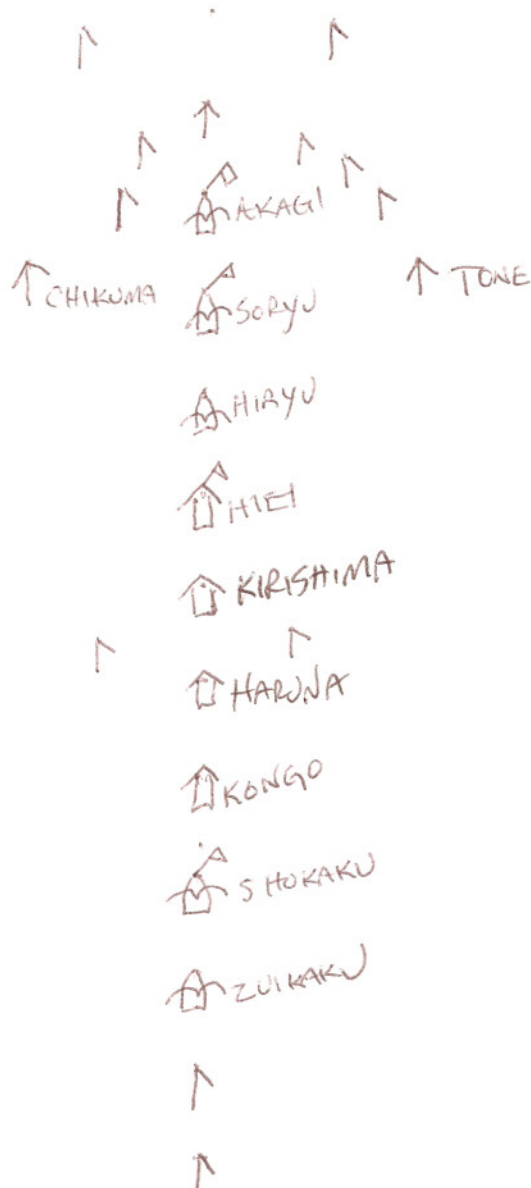 AKAGI
CHIKUMA
TONE
SORYU
HIRYU
HIEI
KIRISHIMA
HARUNA
KONGO
SHOKAKU
ZUIKAKU